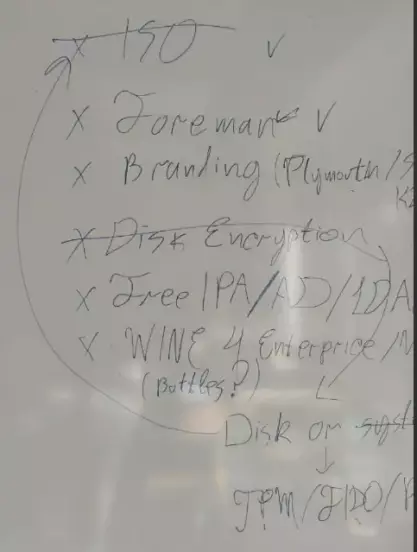 x ISO v
x Foreman v
x Branding (Plymouth /S
K
x Disk Encryption
x Free IPA/AD/LDA
x WINE 4 Enterprice /
(Bottles?)
Disk or syst
TPM/FIDO/